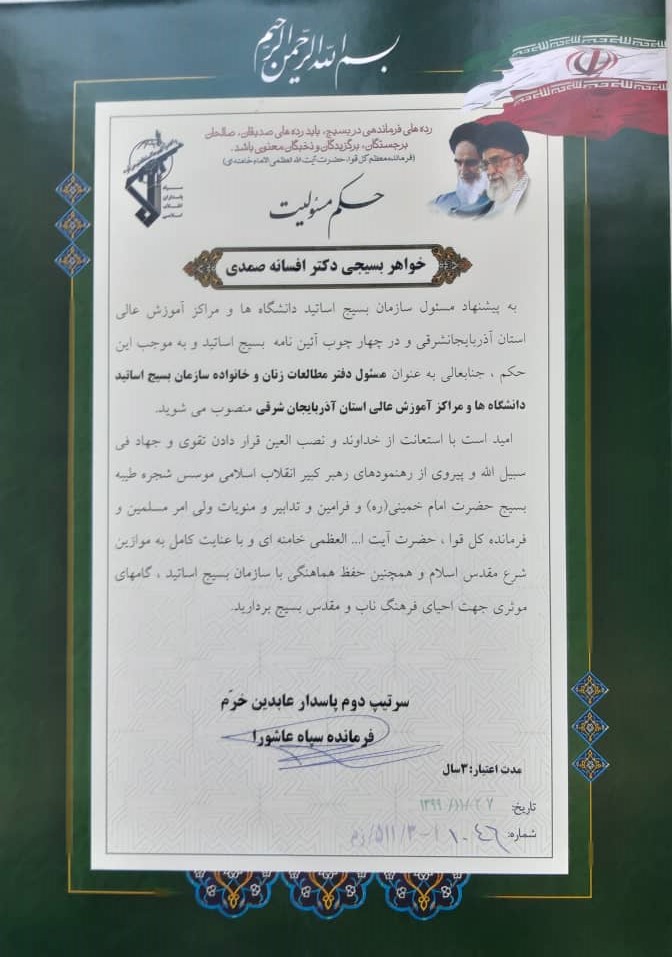 بسم الله الرحمن الرحیم
رده های فرماندهی در بسیج، باید رده های صدیقان، صالحان
برجستگان، برگزیدگان و نخبگان معنوی باشد.
(فرمانده معظم کل قوا، حضرت آیت الله العظمی الامام خامنه ای)
سپاه
پاسداران
انقلاب
اسلامی
حکم مسئولیت
خواهر بسیجی دکتر افسانه صمدی
به پیشنهاد مسئول سازمان بسیج اساتید دانشگاه ها و مراکز آموزش عالی
استان آذربایجانشرقی و در چهار چوب آئین نامه بسیج اساتید و به موجب این
حکم ، جنابعالی به عنوان مسئول دفتر مطالعات زنان و خانواده سازمان بسیج اساتید
دانشگاه ها و مراکز آموزش عالی استان آذربایجان شرقی منصوب می شوید.
امید است با استعانت از خداوند و نصب العین قرار دادن تقوی و جهاد فی
سبیل الله و پیروی از رهنمودهای رهبر کبیر انقلاب اسلامی موسس شجره طیبه
بسیج حضرت امام خمینی(ره) و فرامین و تدابیر و منویات ولی امر مسلمین و
فرمانده کل قوا ، حضرت آیت ا... العظمی خامنه ای و با عنایت کامل به موازین
شرع مقدس اسلام و همچنین حفظ هماهنگی با سازمان بسیج اساتید ، گامهای
موثری جهت احیای فرهنگ ناب و مقدس بسیج بردارید.
سرتیپ دوم پاسدار عابدین خرّم
فرمانده سپاه عاشورا
مدت اعتبار: ۳سال
تاریخ: ۱۳۹۹/۱۱/۲۷
شماره: